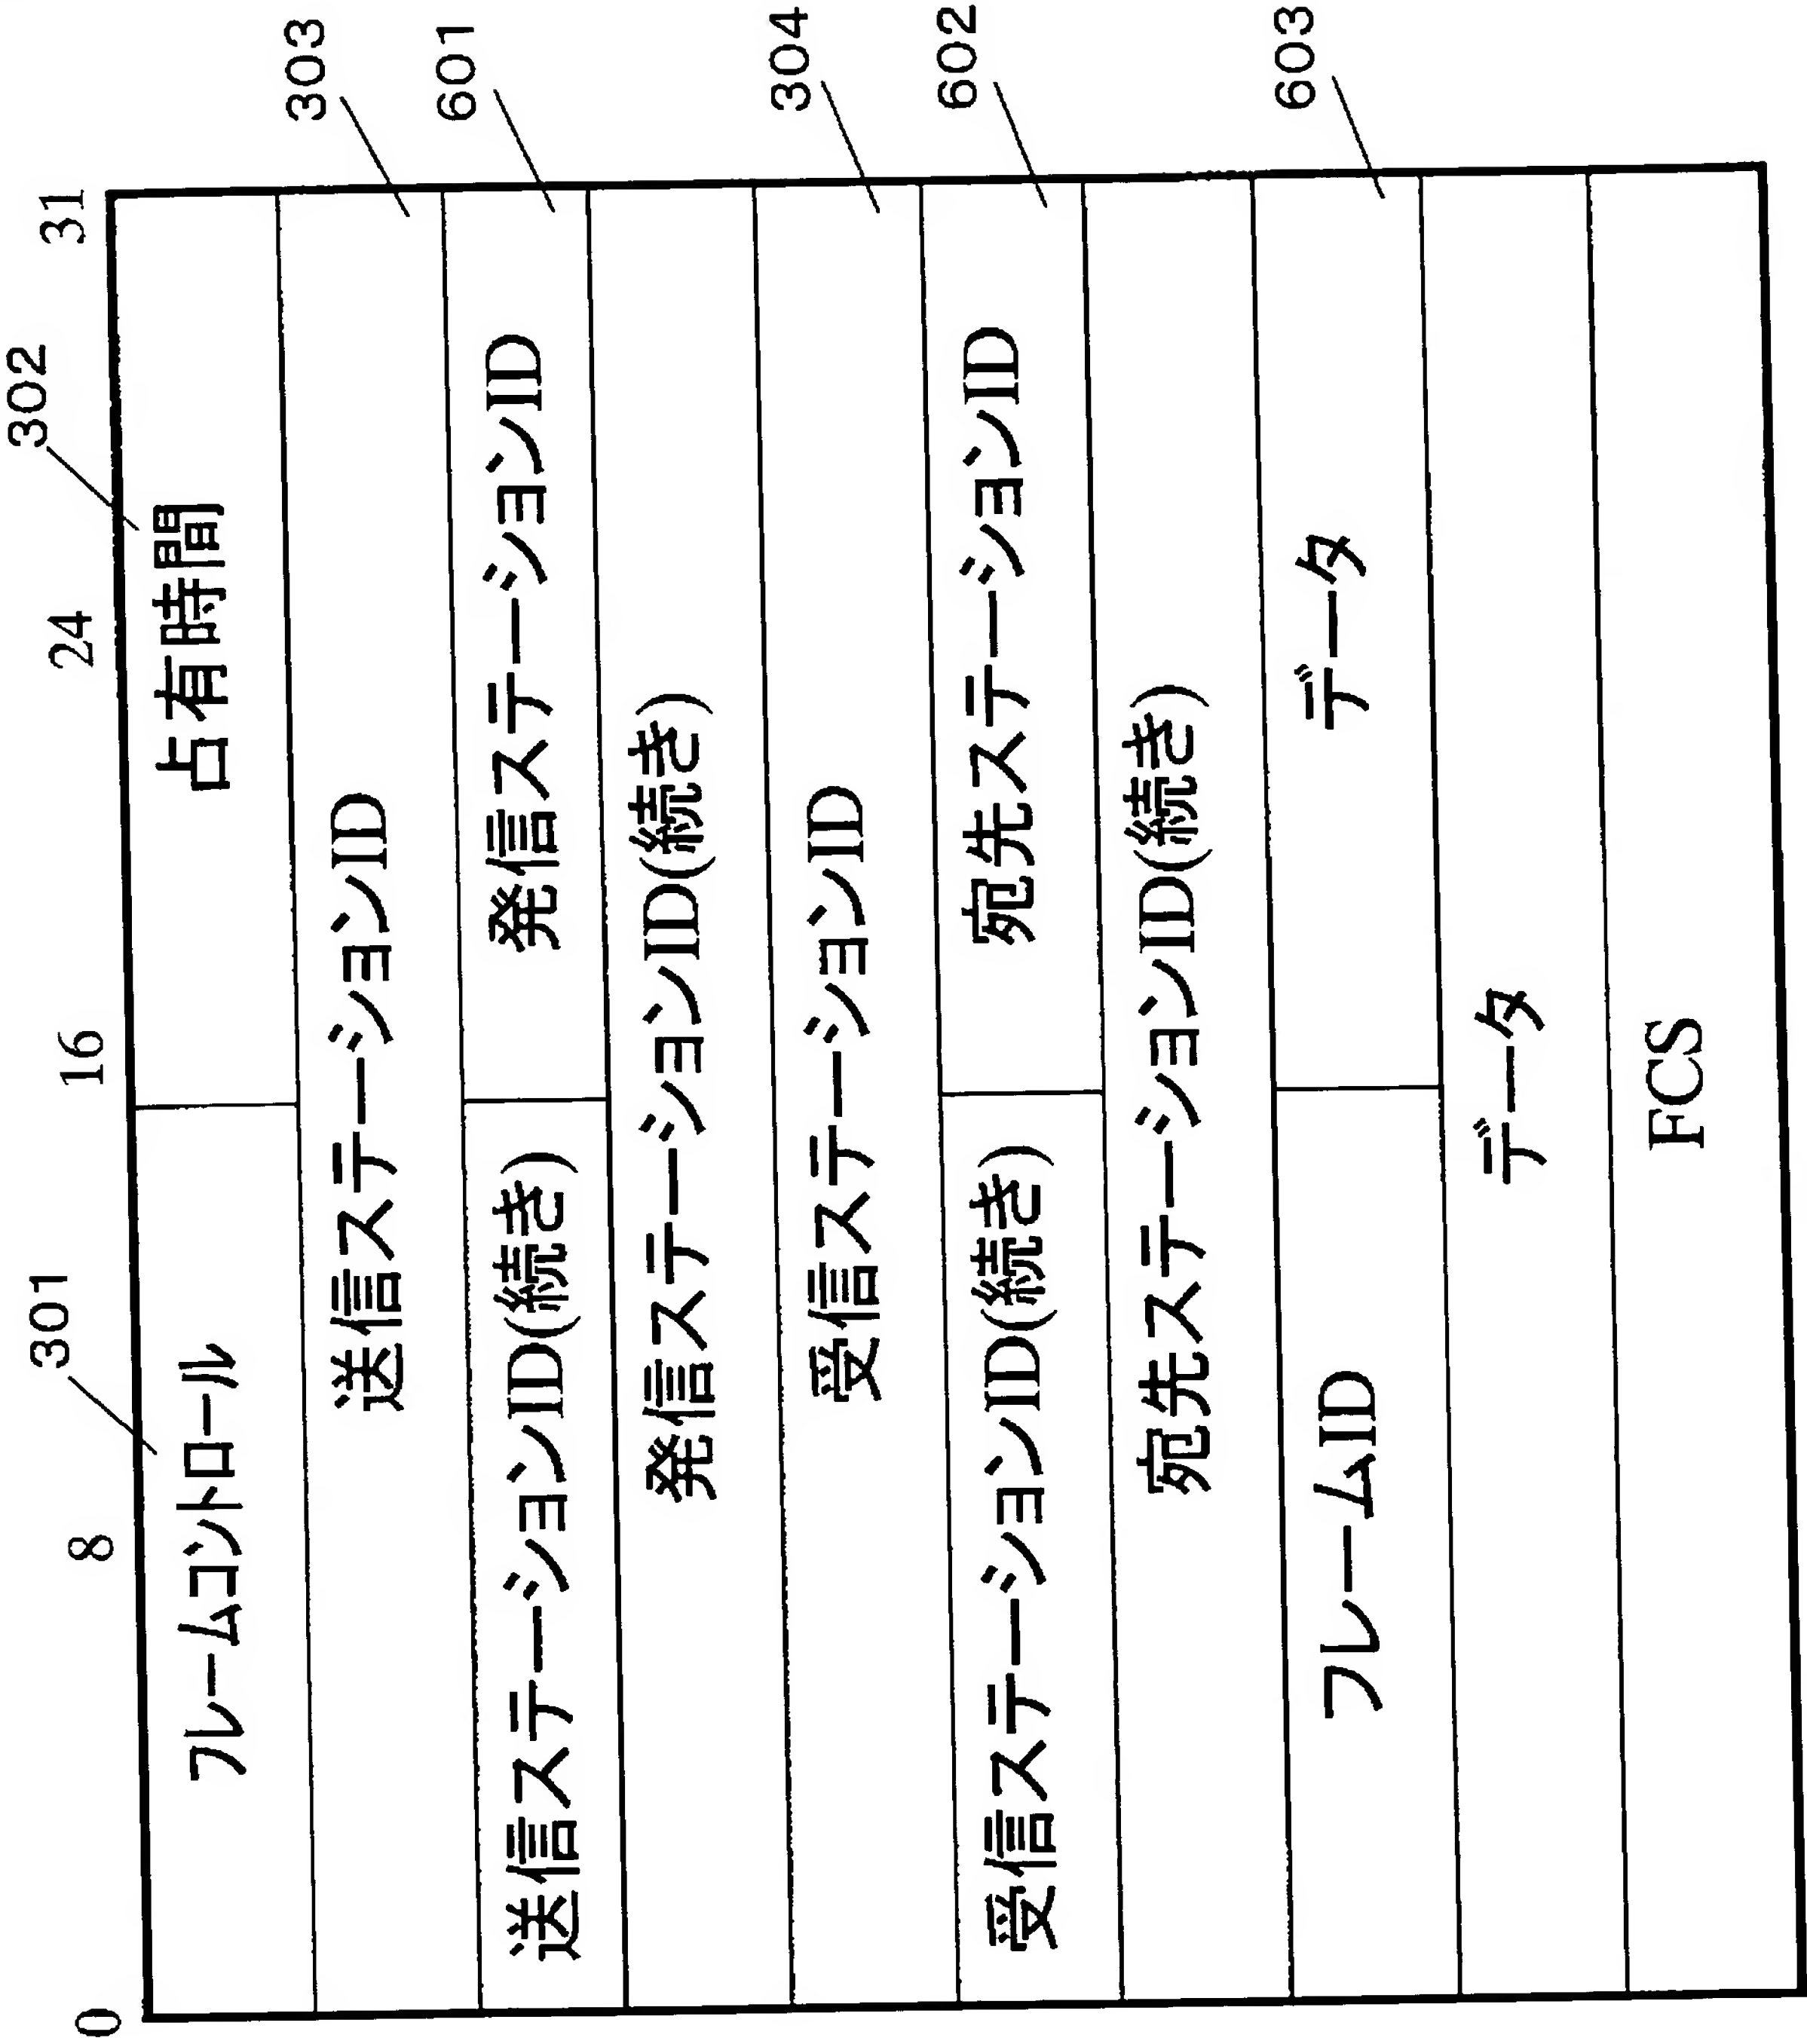 0 8 16 24 31
301 302
フレームコントロール 占有時間
送信ステーションID 303
送信ステーションID(続き) 発信ステーションID 601
発信ステーションID(続き)
受信ステーションID 304
受信ステーションID(続き) 宛先ステーションID 602
宛先ステーションID(続き)
フレームID データ 603
データ
FCS